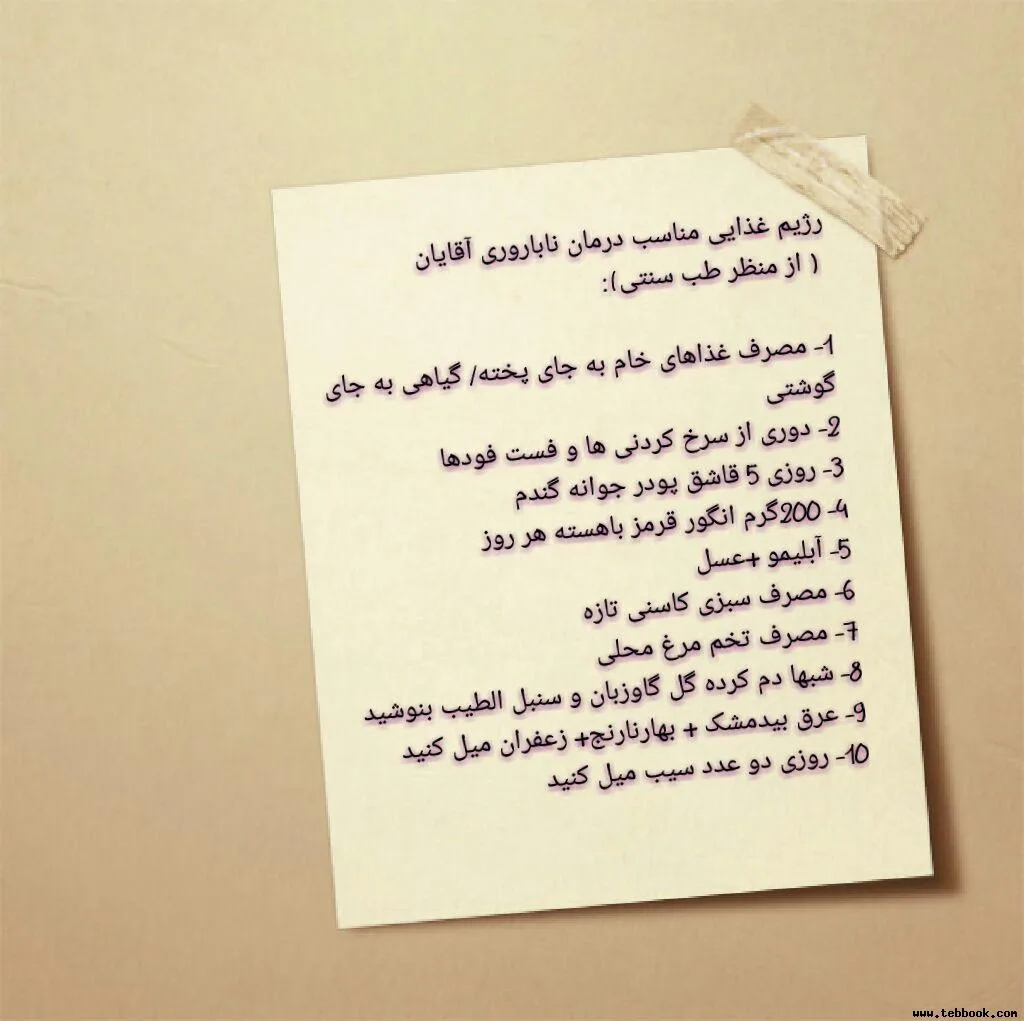 رژیم غذایی مناسب درمان ناباروری آقایان
( از منظر طب سنتی):
1- مصرف غذاهای خام به جای پخته/ گیاهی به جای
گوشتی
2- دوری از سرخ کردنی ها و فست فودها
3- روزی 5 قاشق پودر جوانه گندم
4- 200گرم انگور قرمز باهسته هر روز
5- آبلیمو +عسل
6- مصرف سبزی کاسنی تازه
7- مصرف تخم مرغ محلی
8- شبها دم کرده گل گاوزبان و سنبل الطیب بنوشید
9- عرق بیدمشک + بهارنارنج+ زعفران میل کنید
10- روزی دو عدد سیب میل کنید
www.tebbook.com